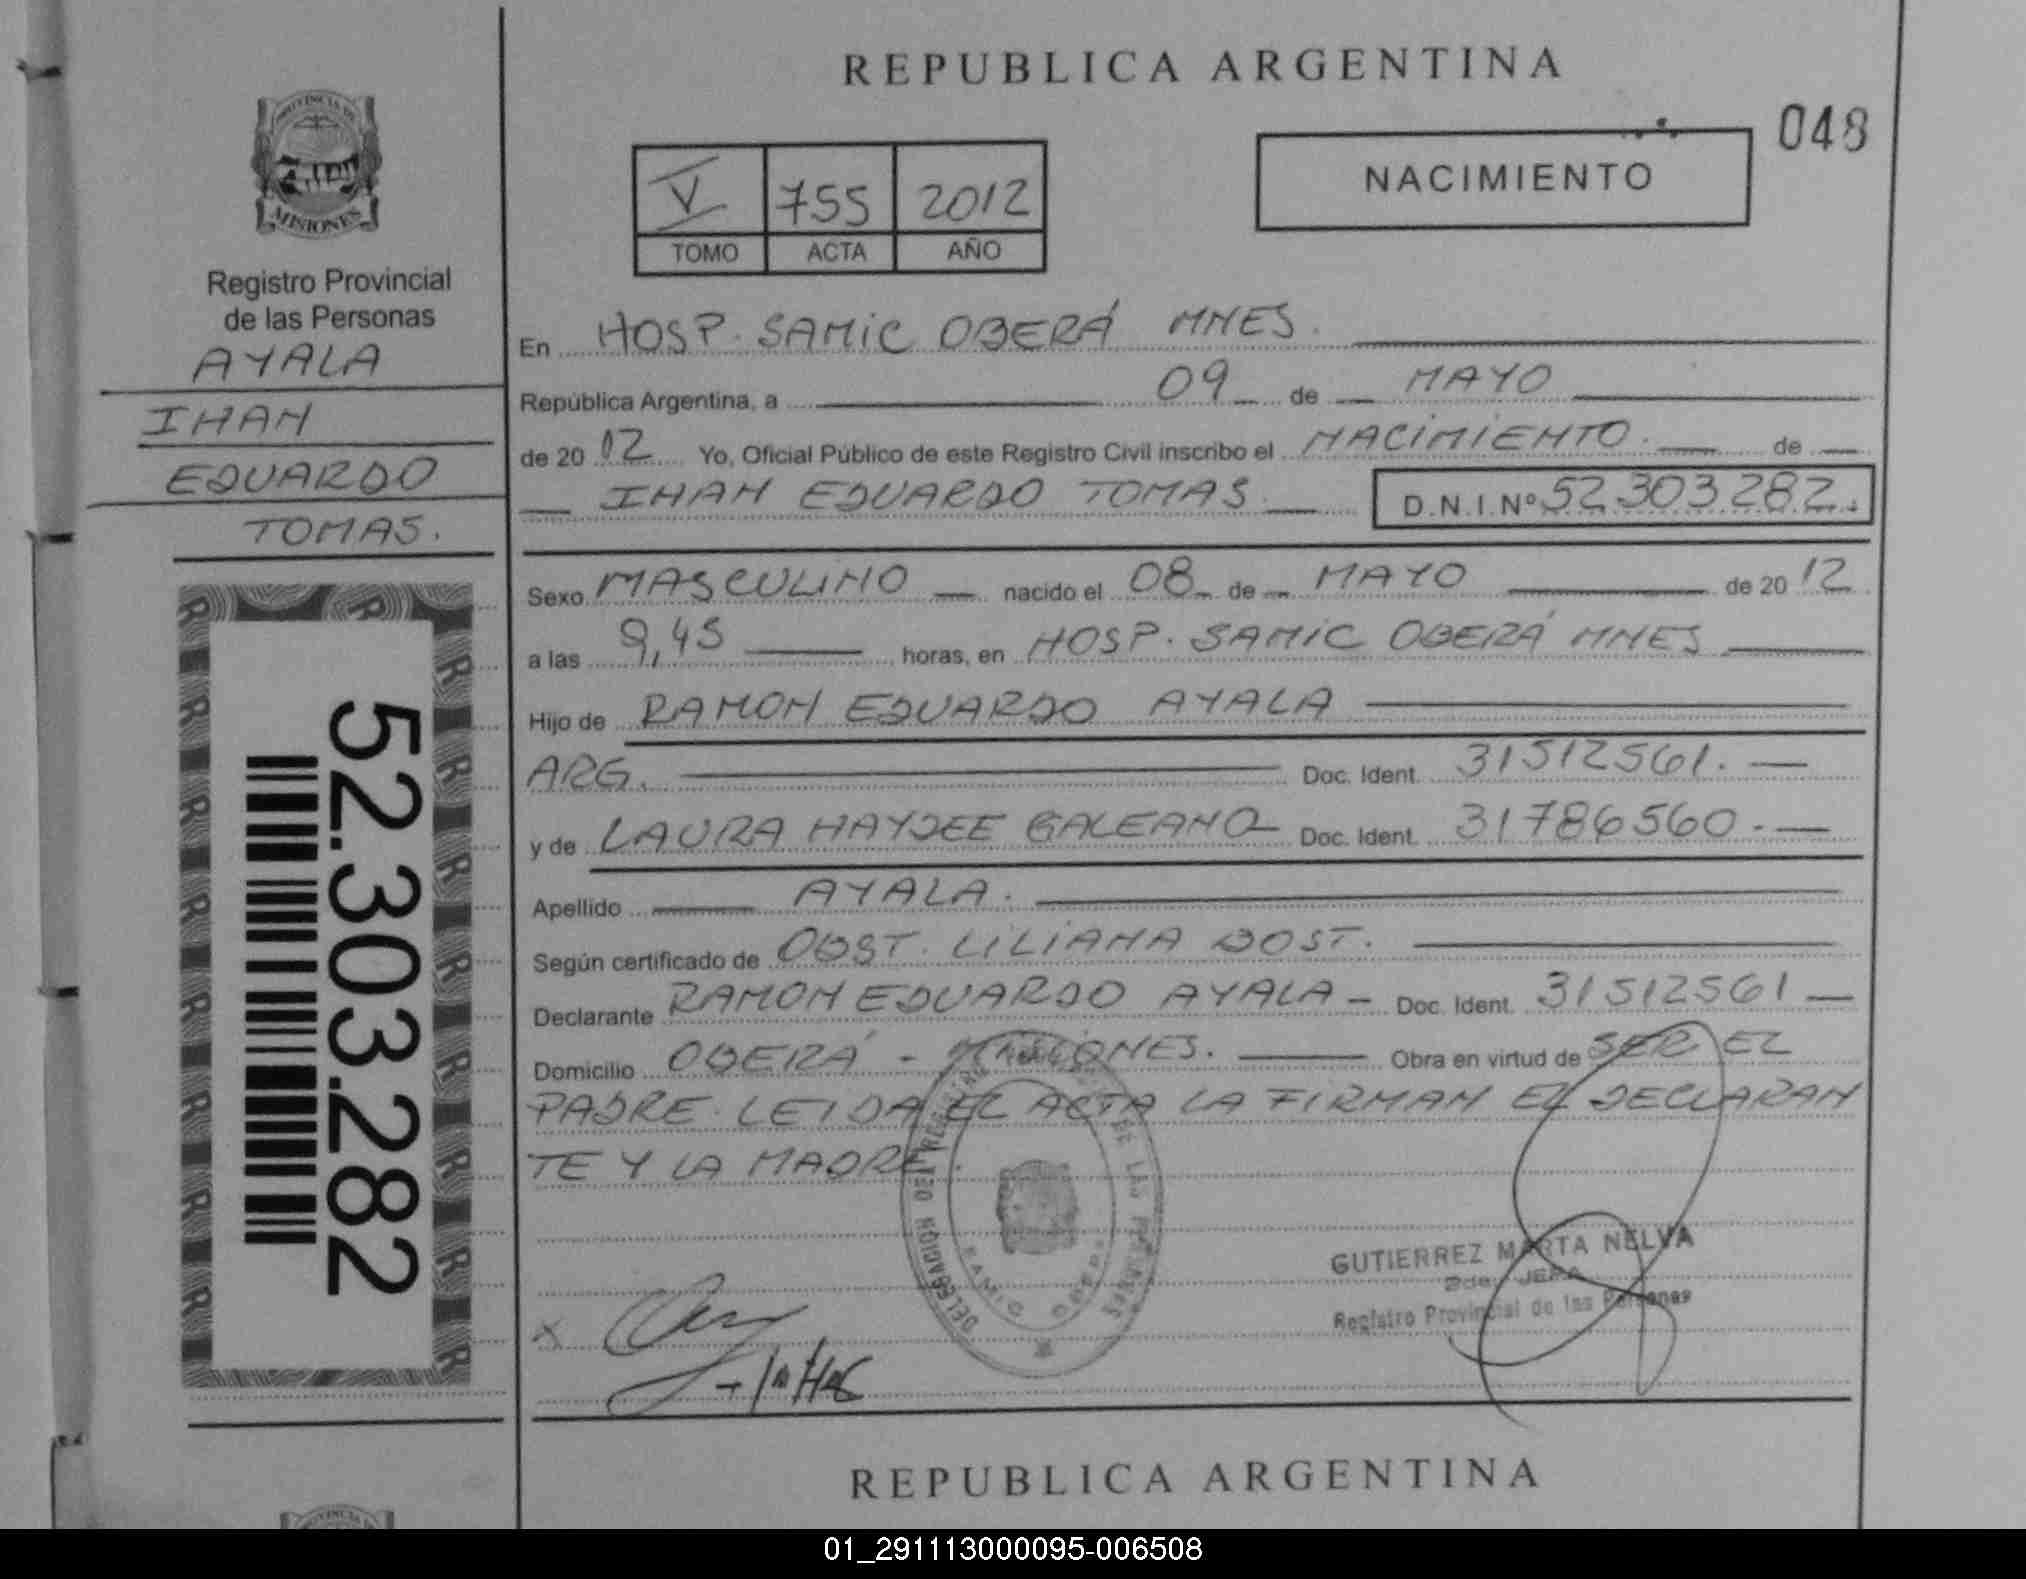 REPUBLICA ARGENTINA
048
NACIMIENTO
V 755 2012
TOMO ACTA AÑO
PROVINCIA DE
MISIONES
Registro Provincial
de las Personas
AYALA
IHAN
EDUARDO
TOMAS.
52.303.282
En HOSP. SAMIC OBERÁ MNES.
República Argentina, a 09 de MAYO
de 2012 Yo, Oficial Público de este Registro Civil inscribo el NACIMIENTO. de
IHAN EDUARDO TOMAS D.N.I.Nº 52.303.282.
Sexo MASCULINO nacido el 08 de MAYO de 2012
a las 9,45 horas, en HOSP. SAMIC OBERÁ MNES
Hijo de RAMON EDUARDO AYALA
ARG. Doc. Ident. 31512561.
y de LAURA HAYDEE GALEANO Doc. Ident. 31786560.
Apellido AYALA.
Según certificado de OBST. LILIANA DOST.
Declarante RAMON EDUARDO AYALA - Doc. Ident. 31512561
Domicilio OBERÁ - MISIONES. Obra en virtud de SER EL
PADRE. LEIDA EL ACTA LA FIRMAN EL DECLARAN
TE Y LA MADRE.
GUTIERREZ MARTA NELVA
2da. JEFA
Registro Provincial de las Personas
X
REPUBLICA ARGENTINA
01_291113000095-006508